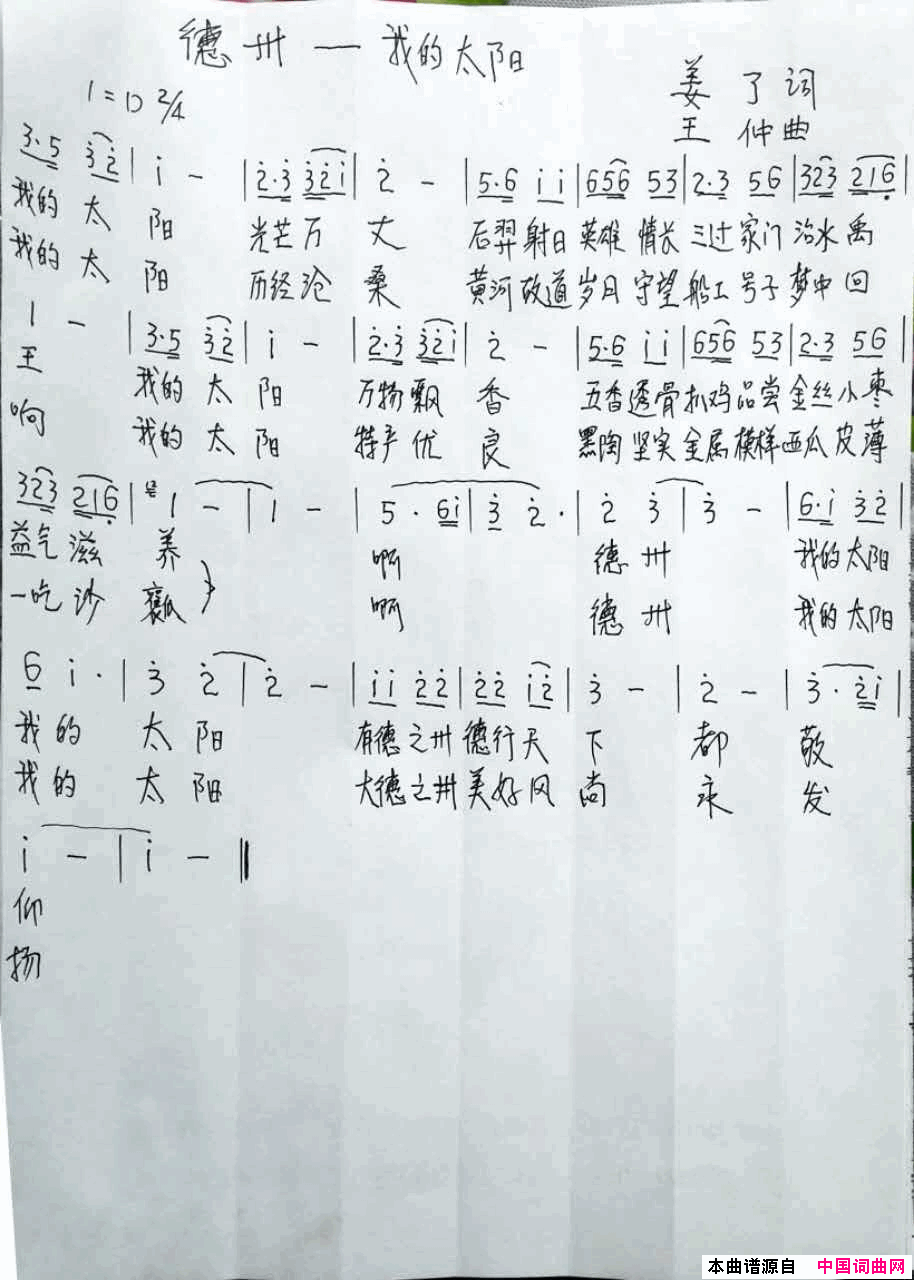 德州——我的太阳
1=D 2/4
姜了词
王仲曲
3·5 3̇2̇ | i - | 2̇·3̇ 3̇2̇i | 2̇ - | 5·6 i i | 656 53 | 2·3 56 | 323 216̣ |
我的太阳 光芒万丈 后羿射日英雄情长三过家门治水禹
我的太阳 历经沧桑 黄河故道岁月守望船工号子梦中回
1 - | 3·5 3̇2̇ | i - | 2̇·3̇ 3̇2̇i | 2̇ - | 5·6 i i | 656 53 | 2·3 56 |
王 我的太阳 万物飘香 五香透骨扒鸡品尝金丝小枣
响 我的太阳 特产优良 黑陶坚实金属模样西瓜皮薄
323 216̣ | 1 - | 1 - | 5·6i | 3̇ 2̇· | 2̇ 3̇ | 3̇ - | 6·i 3̇2̇ |
益气滋养 啊 德州 我的太阳
一吃沙瓤 啊 德州 我的太阳
6 i· | 3̇ 2̇ | 2̇ - | i i 2̇2̇ | 2̇2̇ i2̇ | 3̇ - | 2̇ - | 3̇·2̇i |
我的太阳 有德之州德行天下都敬
我的太阳 大德之州美好风尚永发
i - | i - ‖
仰
扬
本曲谱源自 中国词曲网